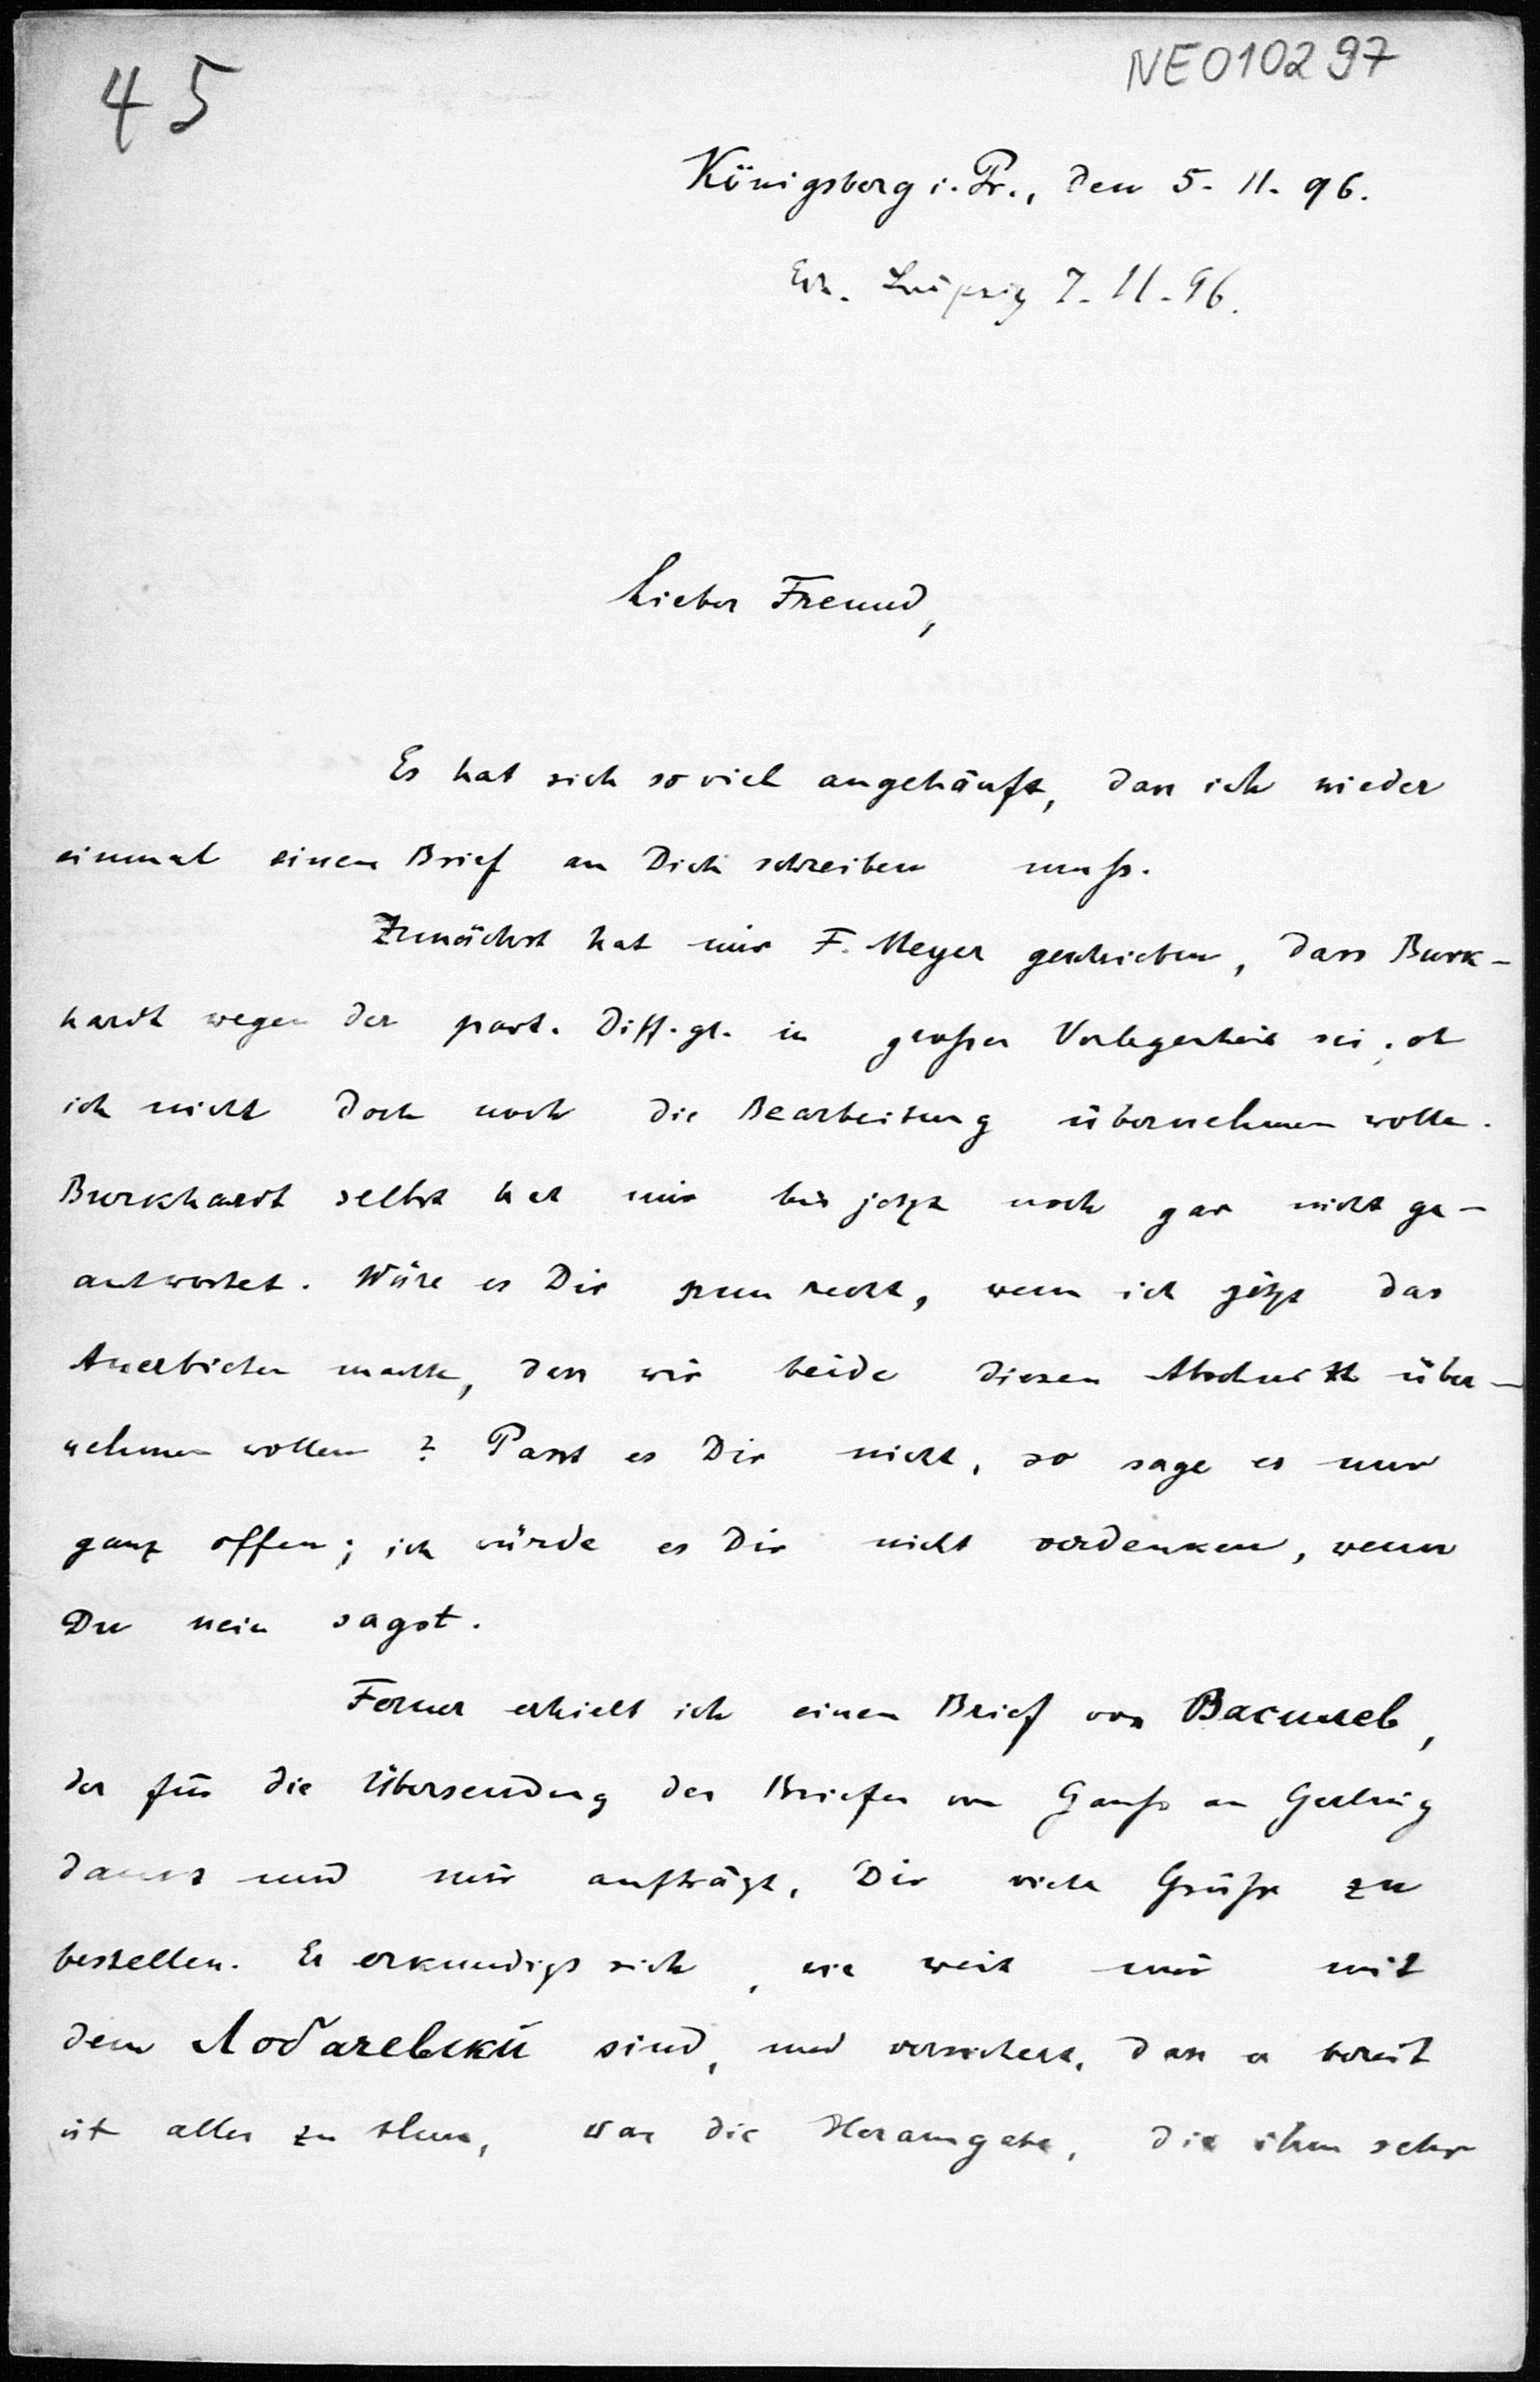 45
NE010297
Königsberg i. Pr., den 5. 11. 96.
Erh. Leipzig 7. 11. 96.
Lieber Freund,
Es hat sich so viel angehäuft, dass ich wieder
einmal einen Brief an Dich schreiben muß.
Zunächst hat mir F. Meyer geschrieben, dass Burk-
hardt wegen der part. Diff. gl. in großer Verlegenheit sei, ob
ich nicht doch noch die Bearbeitung übernehmen wolle.
Burkhardt selbst hat mir bis jetzt noch gar nicht ge-
antwortet. Wäre es Dir nun recht, wenn ich jetzt das
Anerbieten mache, dass wir beide diesen Abschnitt über-
nehmen wollen? Passt es Dir nicht, so sage es nur
ganz offen; ich würde es Dir nicht verdenken, wenn
Du nein sagst.
Ferner erhielt ich einen Brief von Васильев,
der für die Übersendung der Briefe von Gauß an Gerling
dankt und mir aufträgt, Dir viele Grüße zu
bestellen. Er erkundigt sich, wie weit wir mit
dem Лобачевский sind, und versichert, dass er bereit
ist alles zu thun, was die Herausgabe, die ihm sehr